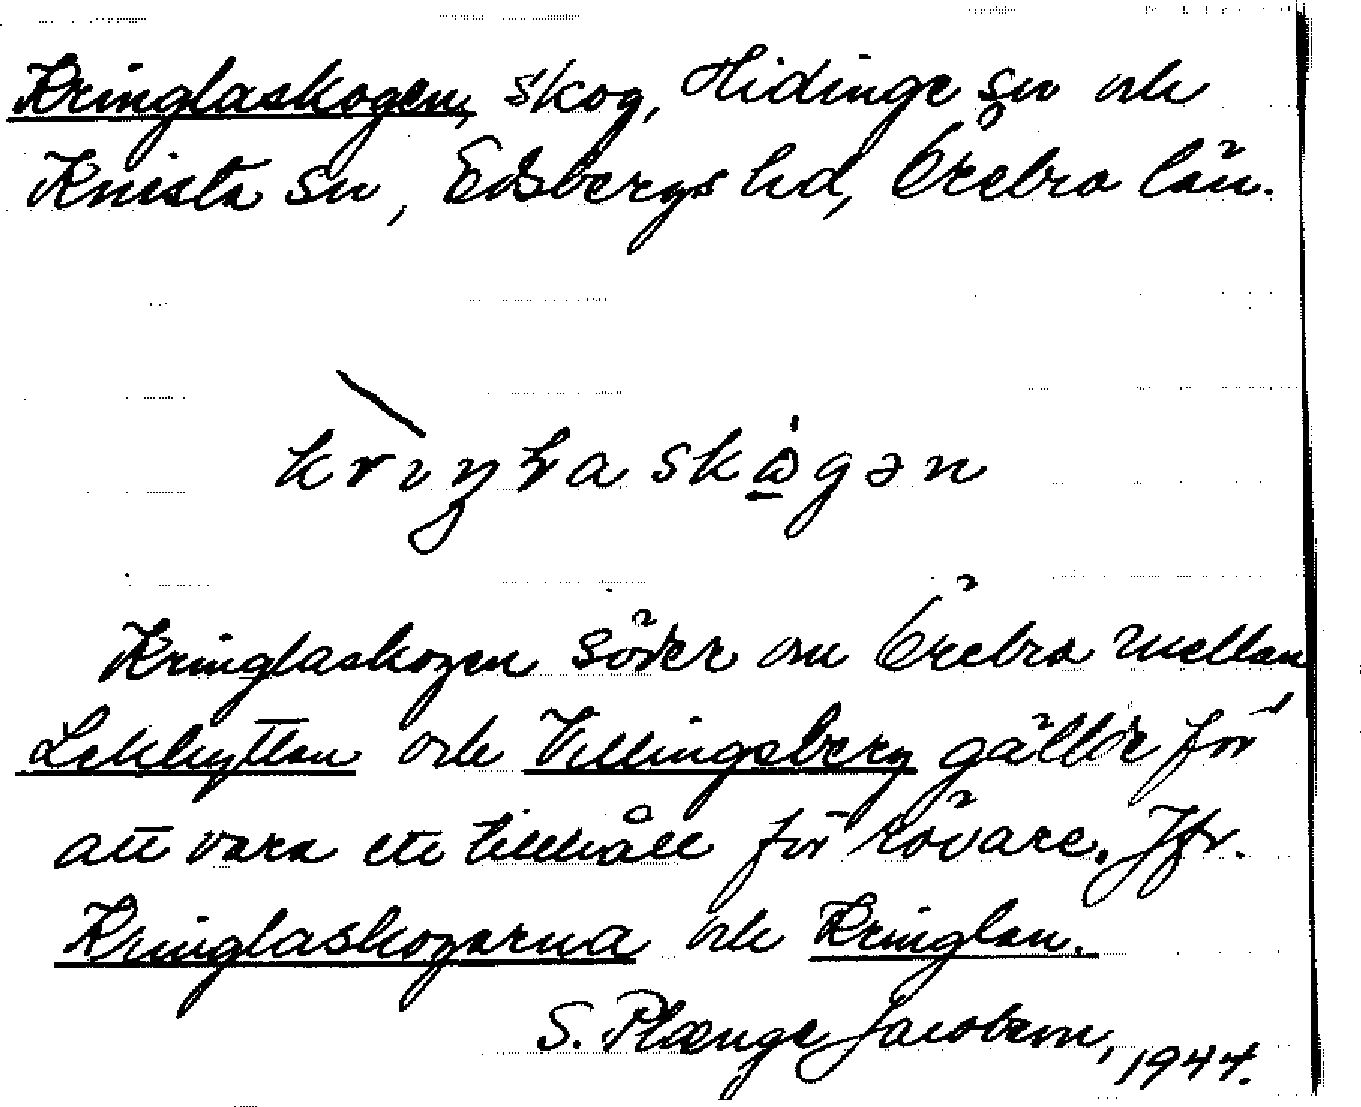 Kringlaskogen, skog, Hidinge sn och
Knista sn, Edsbergs hd, Örebro län.
Kringlaskogen söder om Örebro mellan
Lekhyttan och Villingsberg gällde för
att vara ett tillhåll för rövare. Jfr.
Kringlaskogarna och Kringlan.
S. Plænge Jacobson, 1944.